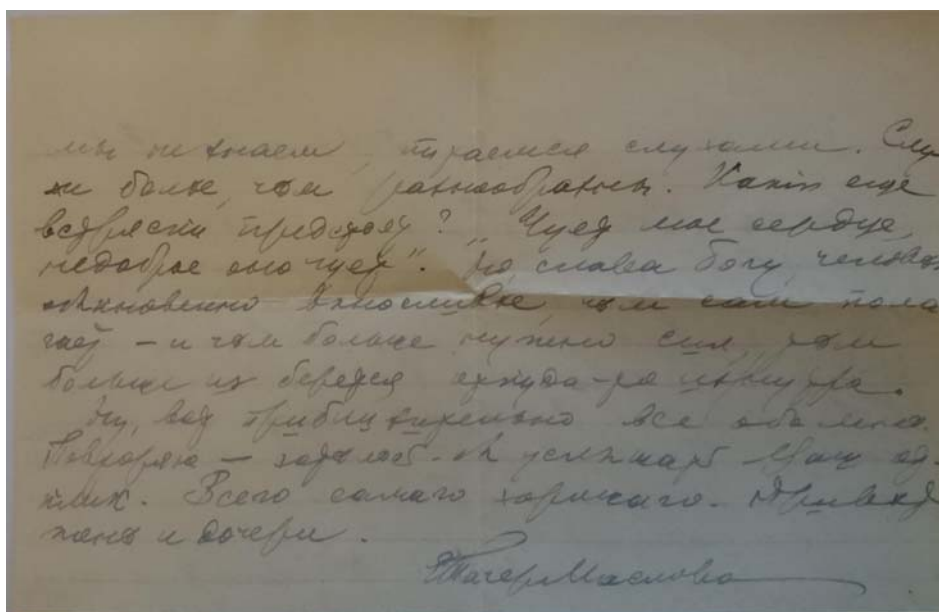 мы не знаем, питаемся слухами. Слу-
хи более, чем разнообразны. Какие еще
встряски предстоят? „Чует мое сердце,
недоброе оно чует“. Но слава богу, человек
обыкновенно выносливее, чем сам пола-
гает – и чем больше нужно сил, тем
больше их берется откуда-то изнутри.
Ну, вот приблизительно все обо мне.
Повторяю – хотелось бы услышать Ваш от-
клик. Всего самого хорошаго. Привет
жене и дочери.
ЕТагер Маслова